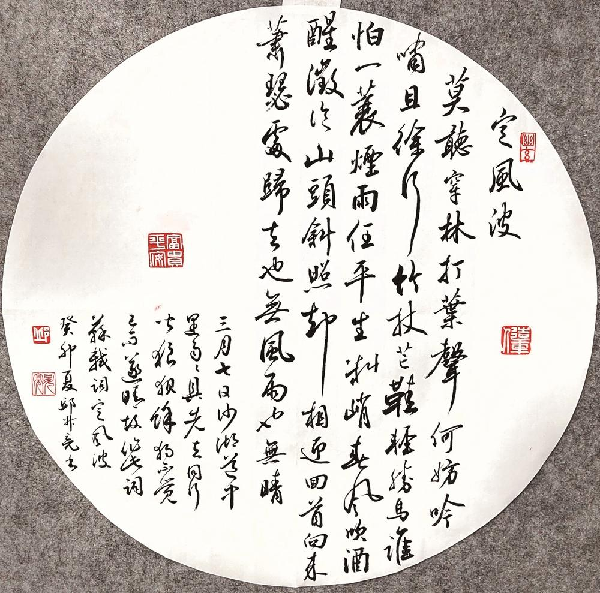 定風波
莫聽穿林打葉聲何妨吟
嘯且徐行竹杖芒鞋輕勝馬誰
怕一蓑煙雨任平生料峭春风吹酒
醒微冷山頭斜照却相迎回首向来
蕭瑟處歸去也無風雨也無晴
富貴平安
三月七日沙湖道中
遇雨雨具先去同行
皆狼狽餘獨不覺
遂晴故作此詞
蘇軾词定风波
癸卯夏邱书